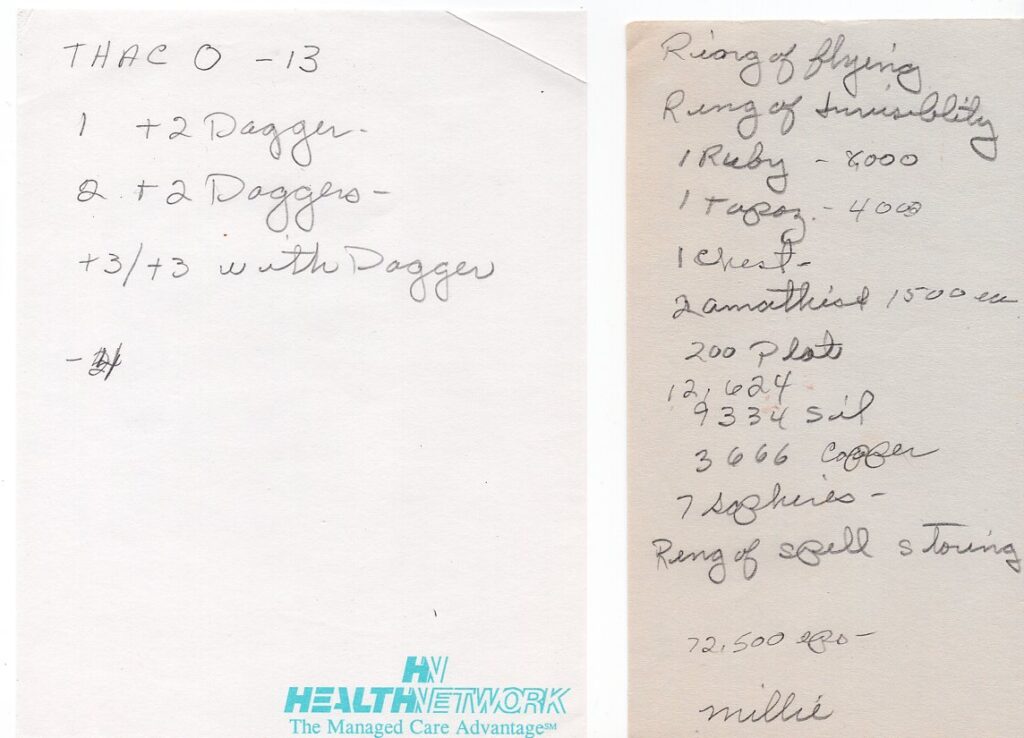 THAC O -13
1 +2 Dagger -
2 +2 Daggers -
+3/+3 with Dagger
HN
HEALTHNETWORK
The Managed Care Advantage℠
Ring of flying
Ring of Invisiblity
1 Ruby - 8000
1 Topaz. - 4000
1 Chest -
2 amathist 1500 ea
200 Plat
12,624
9334 Sil
3666 Copper
7 Saphires -
Ring of spell storing
72,500 eps -
millie